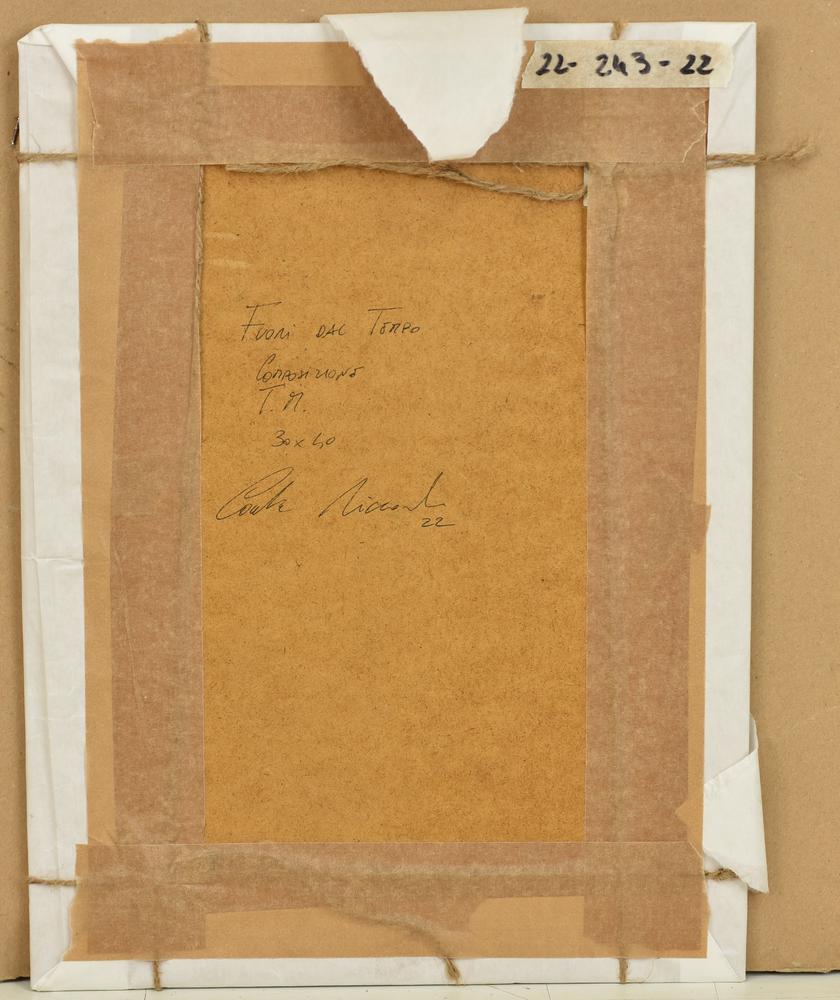 22-243-22
FUORI DAL TEMPO
COMPOSIZIONE
T.M.
30x40
Conte Riccardo
22